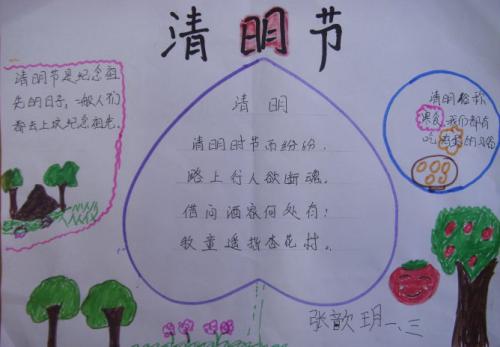 清明节
清明节是纪念祖
先的日子，一般人们
都去上坟纪念祖先.
清明
清明时节雨纷纷，
路上行人欲断魂。
借问酒家何处有：
牧童遥指杏花村。
清明俗称
我们都有
吃
的习俗
张歆玥 一.三